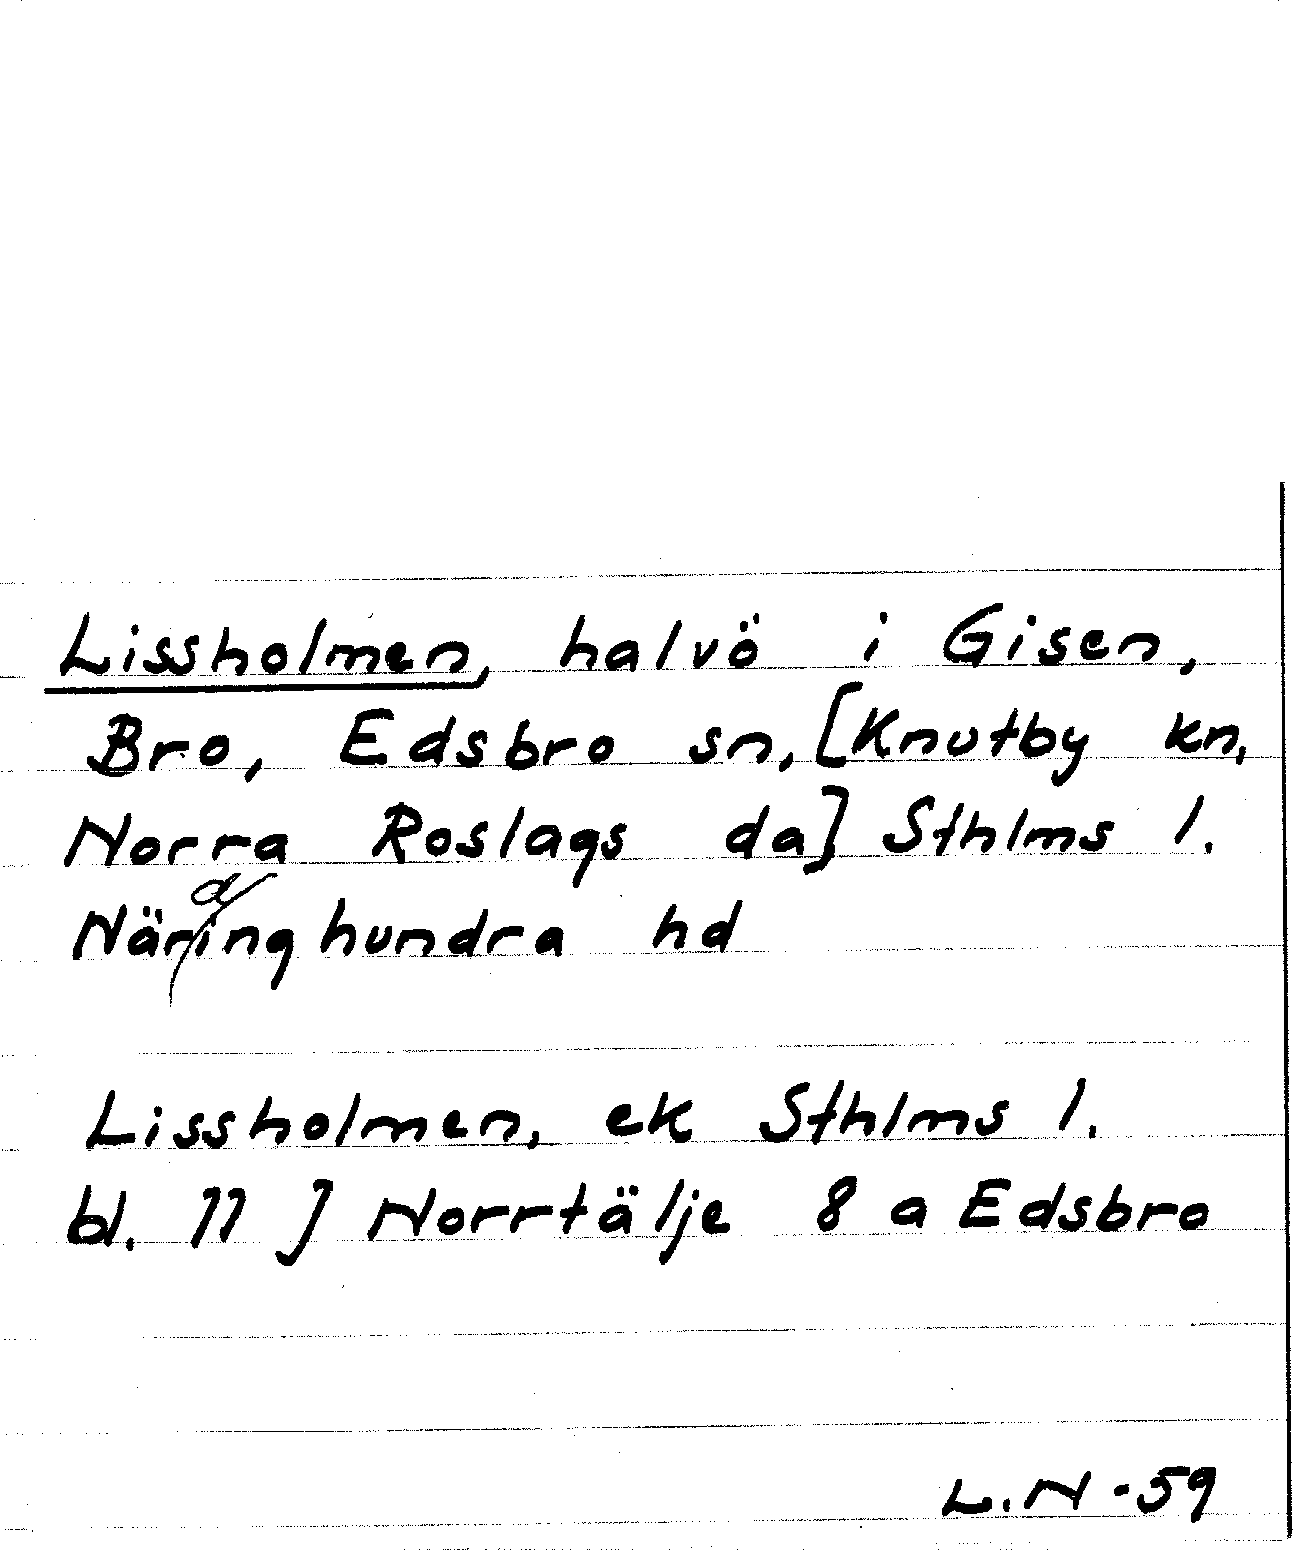 Lissholmen, halvö i Gisen,
Bro, Edsbro sn, [Knutby kn,
Norra Roslags da] Sthlms l.
Närdinghundra hd
Lissholmen, ek Sthlms l.
bl. 11 J Norrtälje 8 a Edsbro
L.N -59